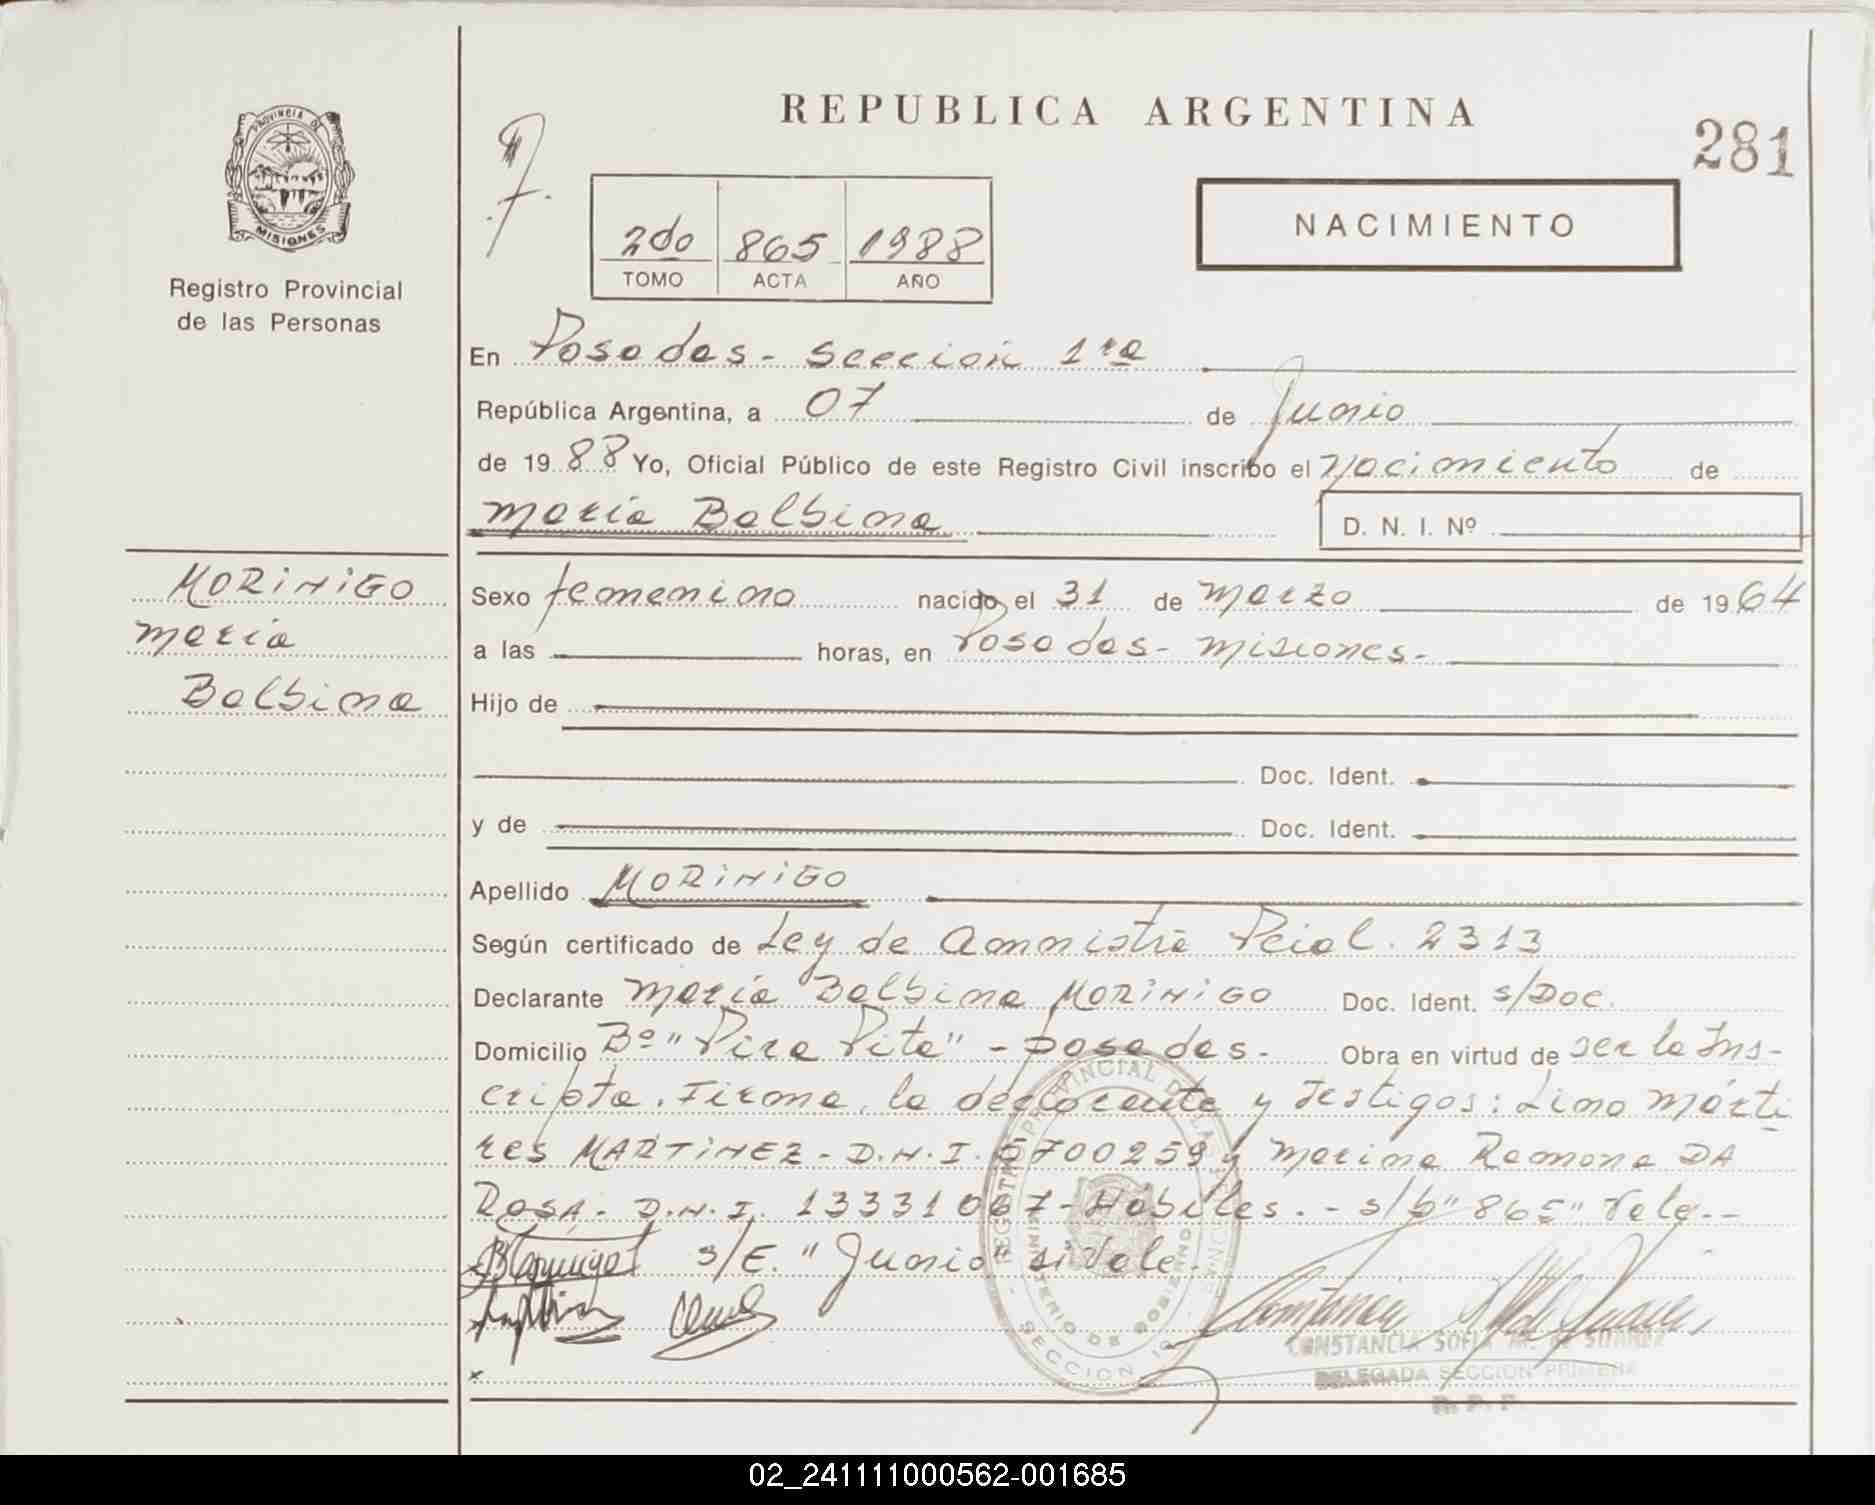 REPUBLICA ARGENTINA
281
PROVINCIA DE
MISIONES
Registro Provincial
de las Personas
2do 865 1988
TOMO ACTA AÑO
NACIMIENTO
En Posadas - Seccion 1ra
República Argentina, a 07 de Junio
de 1988 Yo, Oficial Público de este Registro Civil inscribo el nacimiento de
Maria Balbina D. N. I. Nº
MORINIGO
Maria
Balbina
Sexo femenino nacido el 31 de Marzo de 1964
a las horas, en Posadas - Misiones -
Hijo de
Doc. Ident.
y de Doc. Ident.
Apellido MORINIGO
Según certificado de Ley de Amnistia Pcial. 2313
Declarante Maria Balbina MORINIGO Doc. Ident. s/Doc.
Domicilio Bº "Pira Pita" - Posadas - Obra en virtud de ser la Ins-
cripta. Firma, la declarante y Testigos: Lino Márti
res MARTINEZ - D.N.I. 5700259 y Marina Ramona DA
ROSA - D.N.I. 13331067 - Hábiles. - s/b "865" Vale --
s/E. "Junio" si Vale -
REGISTRO PROVINCIAL DE LAS
MINISTERIO DE GOBIERNO
SECCION 1ª
CONSTANCIA SOFIA M. de SUAREZ
DELEGADA SECCION PRIMERA
R. P. P.
02_241111000562-001685